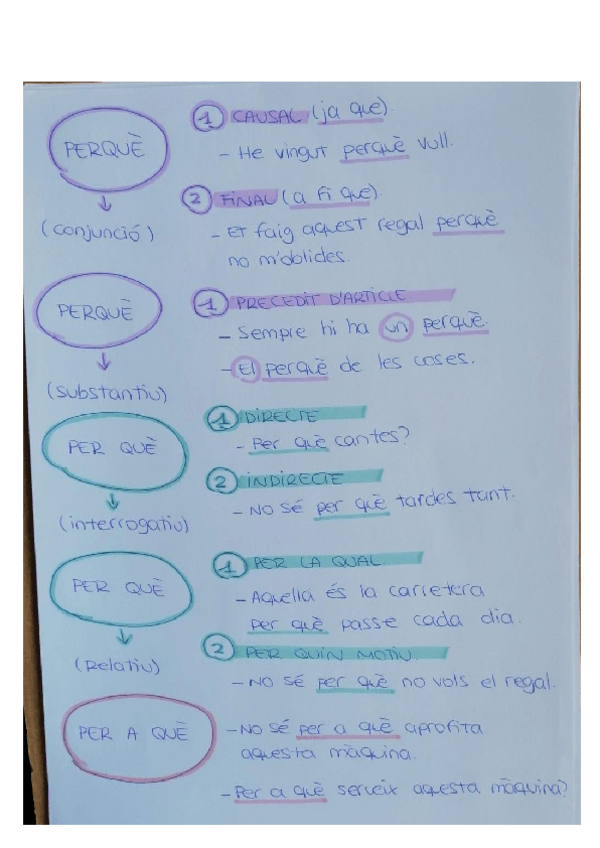 PERQUÈ
(conjunció)
1 CAUSAL (ja que).
- He vingut perquè vull.
2 FINAL (a fi que).
- Et faig aquest regal perquè
no m'oblides.
PERQUÈ
(substantiu)
1 PRECEDIT D'ARTICLE
- Sempre hi ha un perquè.
- El perquè de les coses.
PER QUÈ
(interrogatiu)
1 DIRECTE
- Per què cantes?
2 INDIRECTE
- No sé per què tardes tant.
PER QUÈ
(relatiu)
1 PER LA QUAL
- Aquella és la carretera
per què passe cada dia.
2 PER QUIN MOTIU.
- No sé per què no vols el regal.
PER A QUÈ
- No sé per a què aprofita
aquesta màquina.
- Per a què serveix aquesta màquina?